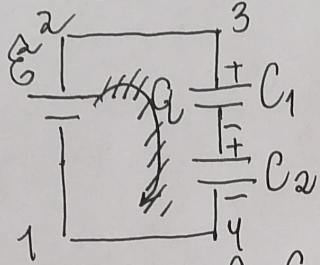 2 3
Ɛ
Q + C₁
−
+ C₂
−
1 4